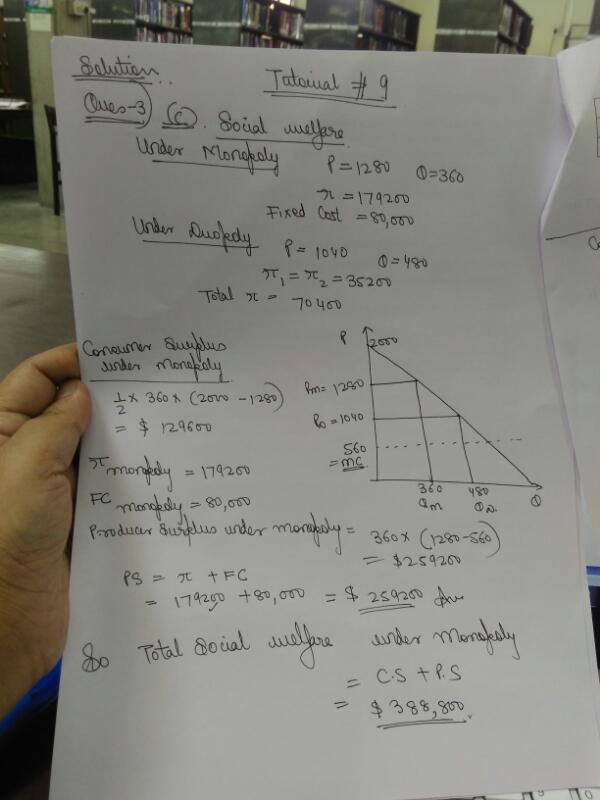 Solution..
Tutorial # 9
Ques-3) (c). Social welfare.
Under Monopoly P = 1280 Q = 360
π = 179200
Fixed Cost = 80,000
Under Duopoly P = 1040 Q = 480
π1 = π2 = 35200
Total π = 70400
Consumer Surplus
under monopoly
1/2 × 360 × (2000 - 1280)
= $ 129600
P
2000
Pm = 1280
PD = 1040
560
= MC
360
480
Qm
QD
Q
π monopoly = 179200
FC monopoly = 80,000
Producer Surplus under monopoly = 360 × (1280-560)
= $259200
PS = π + FC
= 179200 + 80,000 = $ 259200 Ans
So Total Social welfare under Monopoly
= C.S + P.S
= $ 388,800